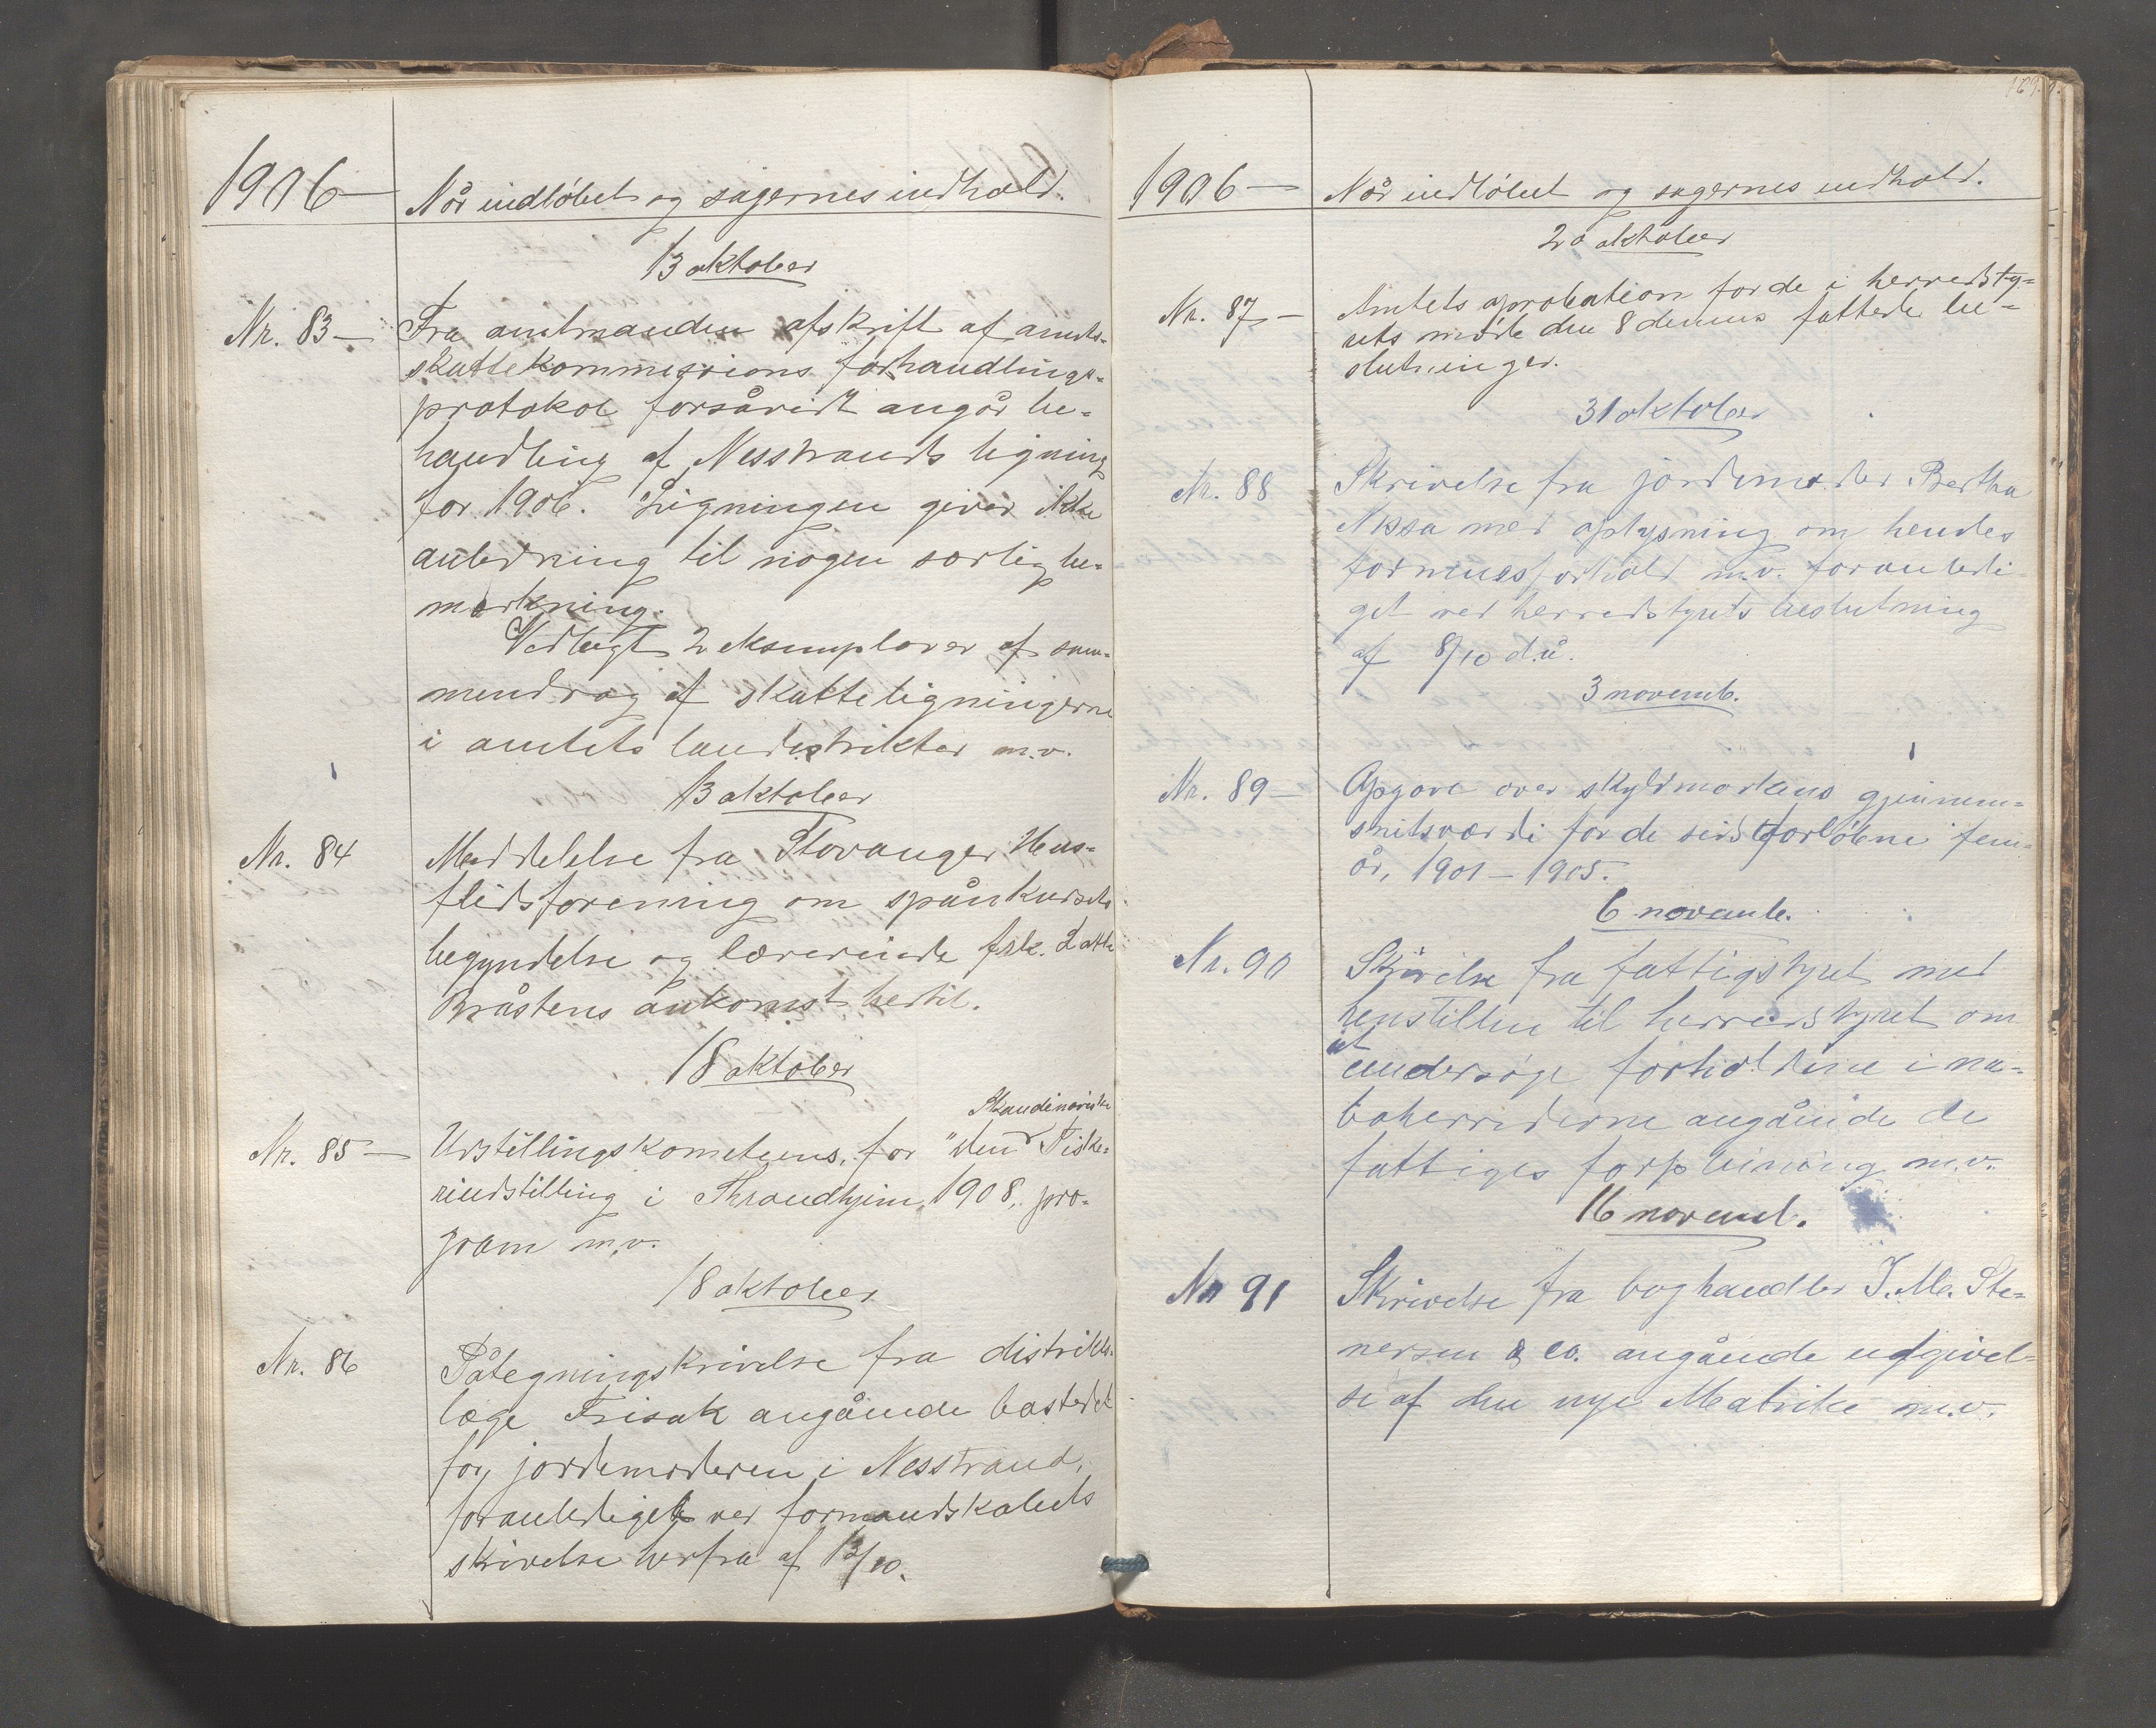 1906 — Når indløbet og sagernes indhold.
13 oktober
Nr. 83 — Fra amtmanden afskrift af amts-
skattekommissions forhandlings-
protokol forsåvidt angår be-
handling af Nesstrands ligning
for 1906. Ligningen giver ikke
anledning til nogen særlig be-
mærkning.
Vedlagt 2 eksemplarer af sam-
mendrag af skatteligningerne
i amtets landdistrikter m.v.
13 oktober
Nr. 84 Meddelelse fra Stavanger Hus-
flidsforening om spånkursets
begyndelse og lærerinde frk. Lotte
Bråstens ankomst hertil.
18 oktober
Skandinaviske
Nr. 85 — Udstillingskometeens, for "den Fiske-
riudstilling i Throndhjem, 1908, pro-
gram m.v.
18 oktober
Nr. 86 Påtegningskrivelse fra distrikts-
læge Frisak angående bostedet
for jordemoderen i Nesstrand,
foranlediget ved formandskabets
skrivelse herfra af 13/10.
169.
1906 — Når indløbet og sagernes indhold.
20 oktober
Nr. 87 — Amtets aprobation for de i herredsty-
rets møde den 8 dennes fattede be-
slutninger.
31 oktober
Nr. 88 Skrivelse fra jordemoder Bertha
Nessa med oplysning om hendes
formuesforhold m.v. foranledi-
get ved herredstyrets beslutning
af 8/10 d.å.
3 novemb.
Nr. 89 — Opgave over skyldmarkens gjennem-
snitsværdi for de sidst forløbne fem-
år, 1901 — 1905.
6 novemb.
Nr. 90 Skrivelse fra fattigstyret med
henstillen til herredstyret om
at
undersøge forholdene i na-
boherrederne angående de
fattiges forpleining m.v.
16 novemb.
Nr 91 Skrivelse fra boghandler J. M. Ste-
nersen & co. angående udgivel-
se af den nye Matrikel m.v.